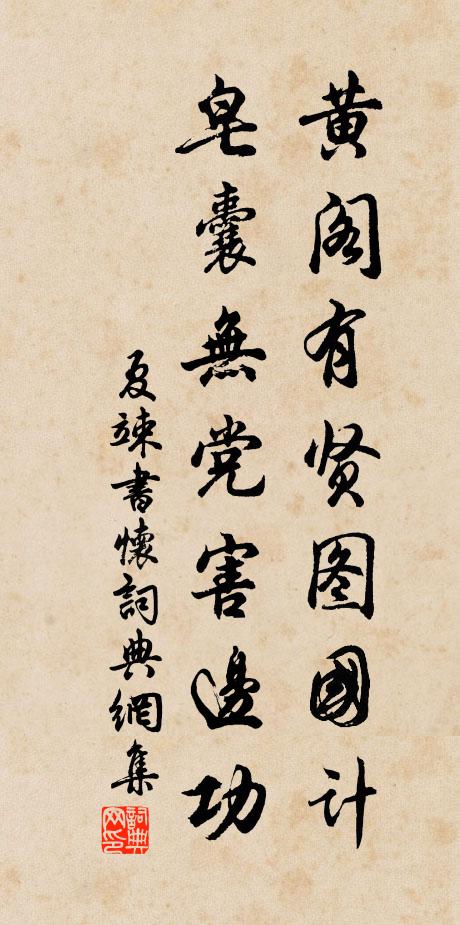 黄阁有贤图國计
皂囊無党害邊功
夏竦書懷詞典網集
詞典网印